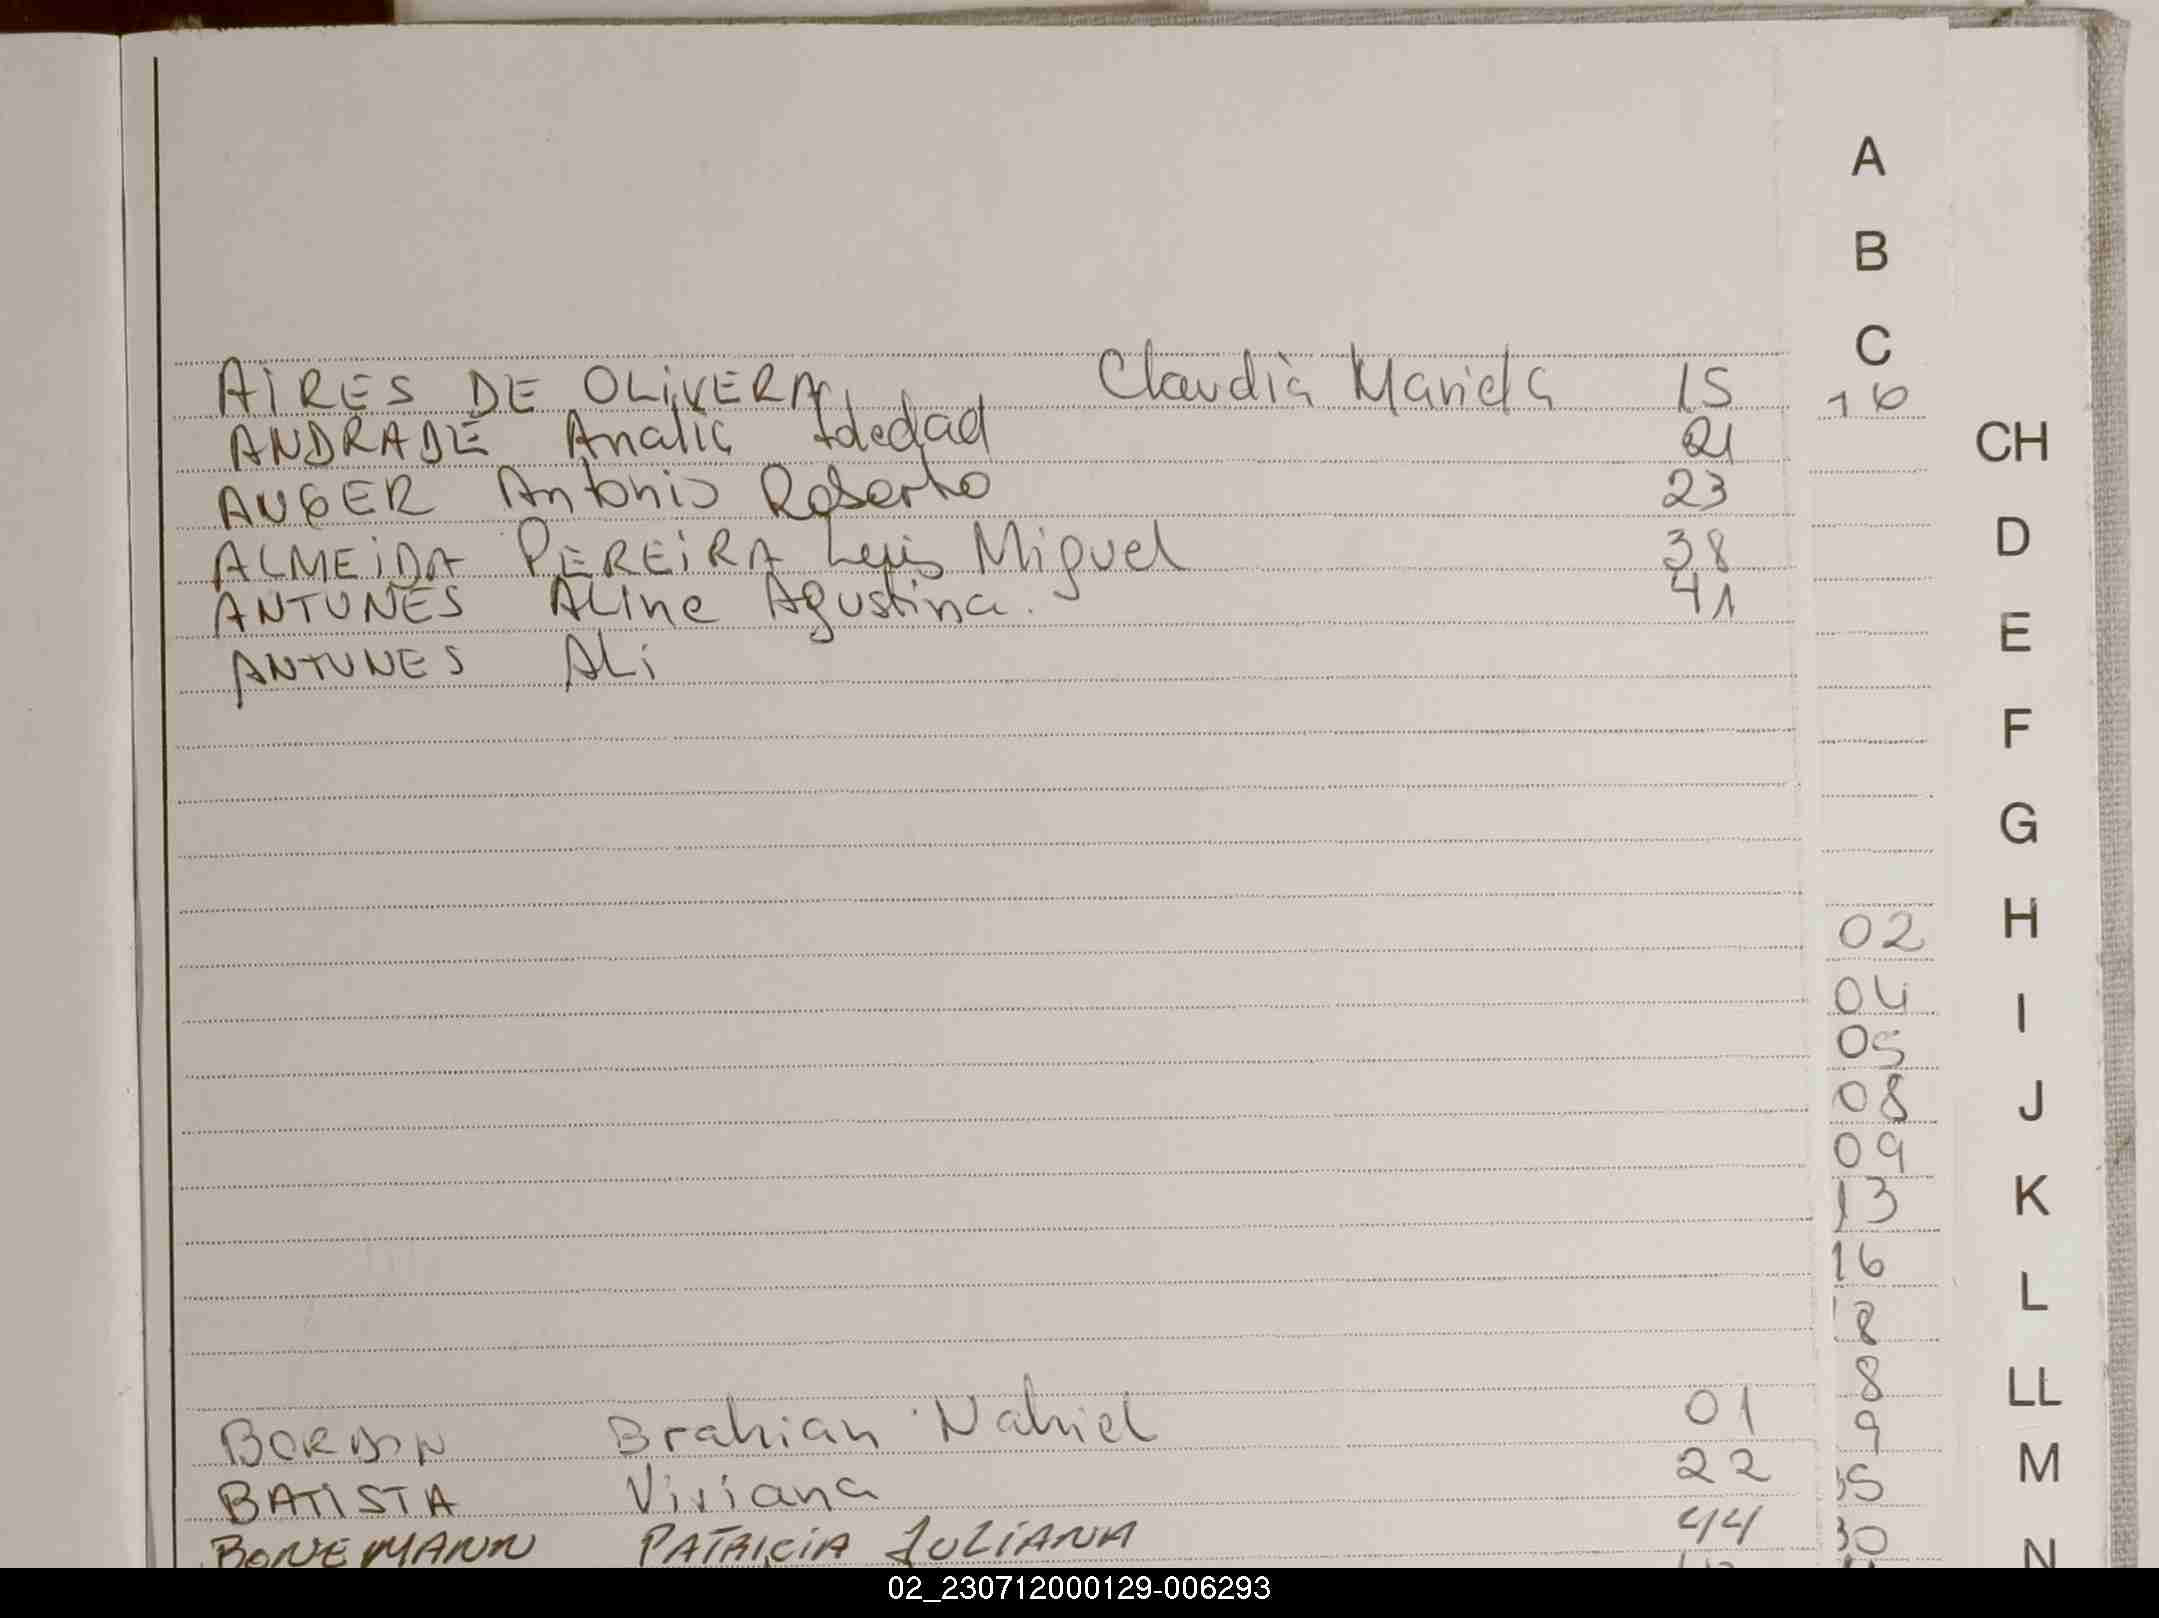 A
B
C
AIRES DE OLIVERA Claudia Mariela 15
16
ANDRADE Analia Soledad 21
CH
AUGER Antonio Roberto 23
ALMEIDA PEREIRA Luis Miguel 38
D
ANTUNES ALine Agustina. 41
E
ANTUNES ALi
F
G
H
02
I
04
05
J
08
09
K
13
16
L
8
LL
8
BORDON Brahian Nahiel 01
9
M
BATISTA Viviana 22
BONEMANN PATRICIA JULIANA 44
30
N
02_230712000129-006293